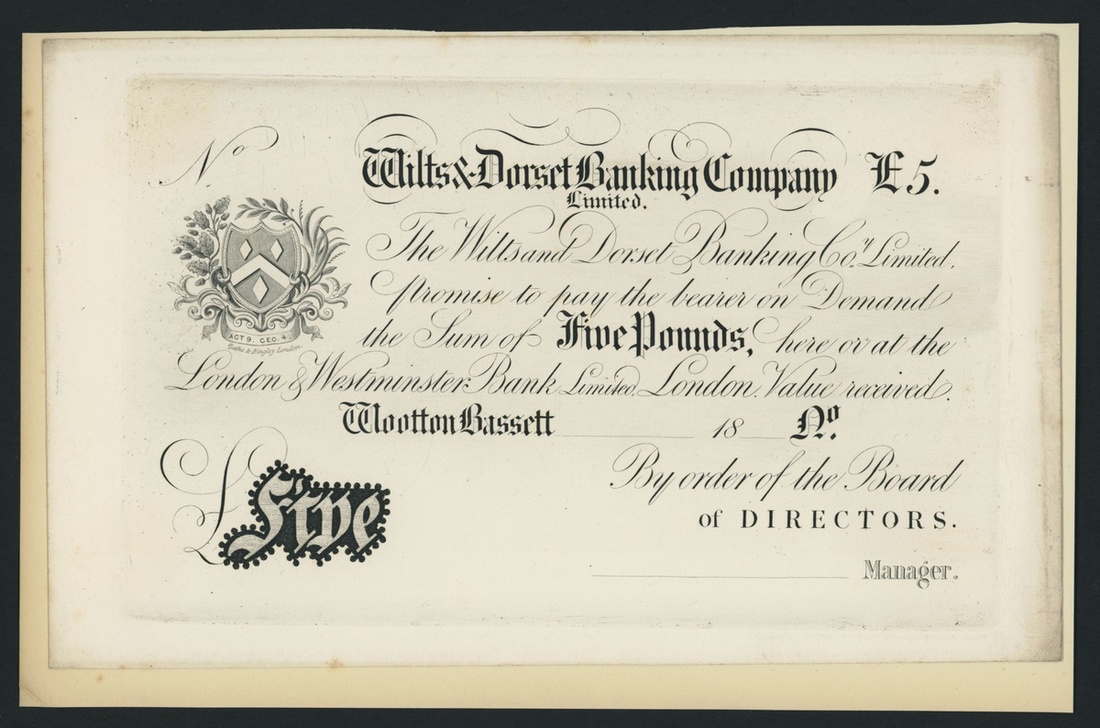 No
Wilts & Dorset Banking Company £5.
Limited.
The Wilts and Dorset Banking Coy. Limited.
promise to pay the bearer on Demand
the Sum of Five Pounds, here or at the
London & Westminster Bank Limited, London. Value received.
ACT 9. GEO. 4.
Wootton Bassett 18 No.
By order of the Board
of DIRECTORS.
£ Five
Manager.